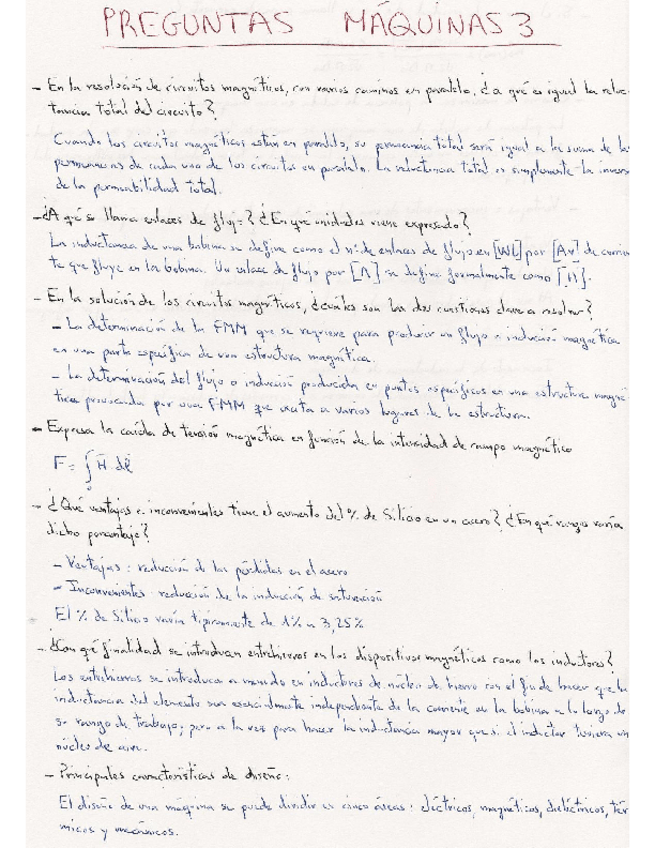 PREGUNTAS MÁQUINAS 3
- En la resolución de circuitos magnéticos, con varios caminos en paralelo, ¿a qué es igual la reluc
tancia total del circuito?
Cuando los circuitos magnéticos están en paralelo, su permeancia total será igual a la suma de las
permeancias de cada uno de los circuitos en paralelo. La reluctancia total es simplemente la invers
de la permeabilidad total.
- ¿A qué se llama enlaces de flujo? ¿En qué unidades viene expresado?
La inductancia de una bobina se define como el nº de enlaces de flujo en [Wb] por [Av] de corrien
te que fluye en la bobina. Un enlace de flujo por [A] se define formalmente como [H].
- En la solución de los circuitos magnéticos, ¿cuáles son las dos cuestiones clave a resolver?
- La determinación de la FMM que se requiere para producir un flujo o inducción magnética
en una parte específica de una estructura magnética.
- La determinación del flujo o inducción producida en puntos específicos en una estructura magné
tica provocada por una FMM que excita a varios lugares de la estructura.
- Expresa la caída de tensión magnética en función de la intensidad de campo magnético
F = ∫ H · dl
- ¿Qué ventajas e inconvenientes tiene el aumento del % de Silicio en un acero? ¿En qué rango varía
dicho porcentaje?
- Ventajas: reducción de las pérdidas en el acero
- Inconvenientes: reducción de la inducción de saturación
El % de Silicio varía típicamente de 1% a 3,25%
- ¿Con qué finalidad se introducen entrehierros en los dispositivos magnéticos como los inductores?
Los entrehierros se introducen a menudo en inductores de núcleo de hierro con el fin de hacer que la
inductancia del elemento sea esencialmente independiente de la corriente en la bobina a lo largo de
su rango de trabajo, pero a la vez para hacer la inductancia mayor que si el inductor tuviera un
núcleo de aire.
- Principales características de diseño:
El diseño de una máquina se puede dividir en cinco áreas: eléctricos, magnéticos, dieléctricos, tér
micos y mecánicos.